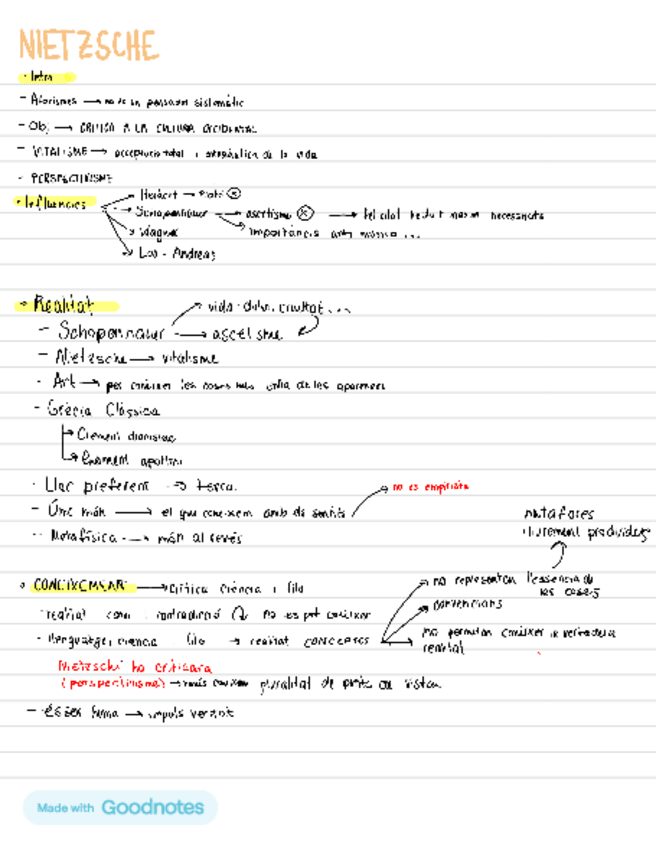 NIETZSCHE
· Intro
- Aforismes → no és un pensador sistemàtic
- Obj → CRÍTICA A LA CULTURA OCCIDENTAL
- VITALISME → acceptació total i de la vida
- PERSPECTIVISME
· Influències
→ Schopenhauer → ascetisme ⓧ →
→ importància art, música ...
→ Wagner
→ Lou - Andreas
· Realitat → vida: dolor, crueltat ...
- Schopenhauer → ascetisme
- Nietzsche → vitalisme
- Art → per conèixer les coses més enllà de les aparences
- Grècia Clàssica
→ Element dionisíac
→ Element apol·lini
· Lloc preferent → terra
→ no és empirista
- Únic món → el que coneixem amb els sentits
- Metafísica → món al revés
metàfores
lliurement produïdes
· CONEIXEMENT → Crítica ciència i filo
→ no representen l'essència de les coses
→ convencions
· realitat com contradicció no es pot conèixer
- llenguatge, ciència filo → realitat CONCEPTES
→ no permeten conèixer la vertadera realitat
Nietzsche ho criticarà
(perspectivisme) → pluralitat de punts de vista
- Ésser humà → impuls veritat
Made with Goodnotes